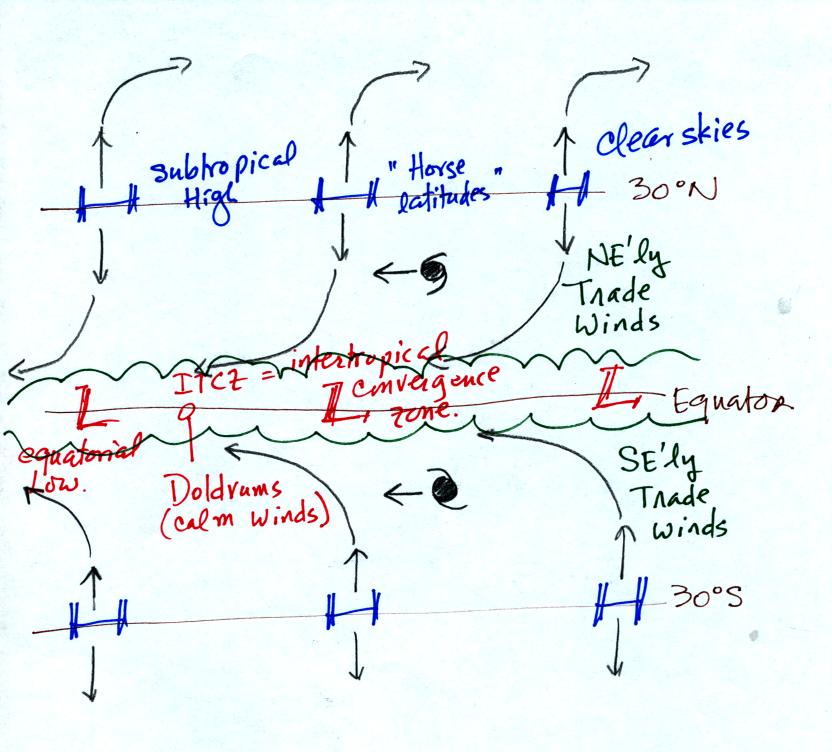 Clear skies
Subtropical
High
"Horse
latitudes"
H H H
30°N
NE'ly
Trade
Winds
ITCZ = intertropical
convergence
zone.
L L L
Equator
equatorial
Low.
Doldrums
(calm winds)
SE'ly
Trade
Winds
H H H
30°S